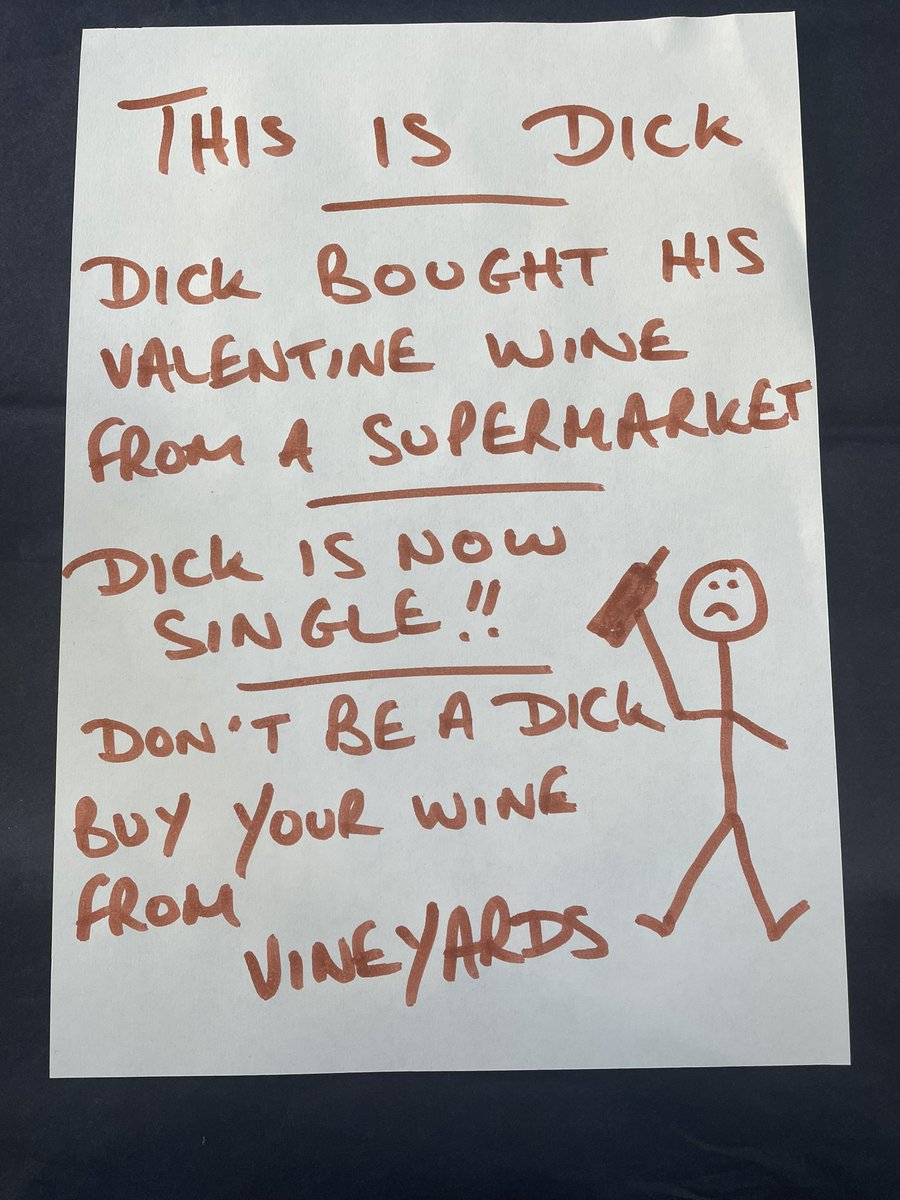 THIS IS DICK
DICK BOUGHT HIS
VALENTINE WINE
FROM A SUPERMARKET
DICK IS NOW
SINGLE!!
DON'T BE A DICK
BUY YOUR WINE
FROM
VINEYARDS